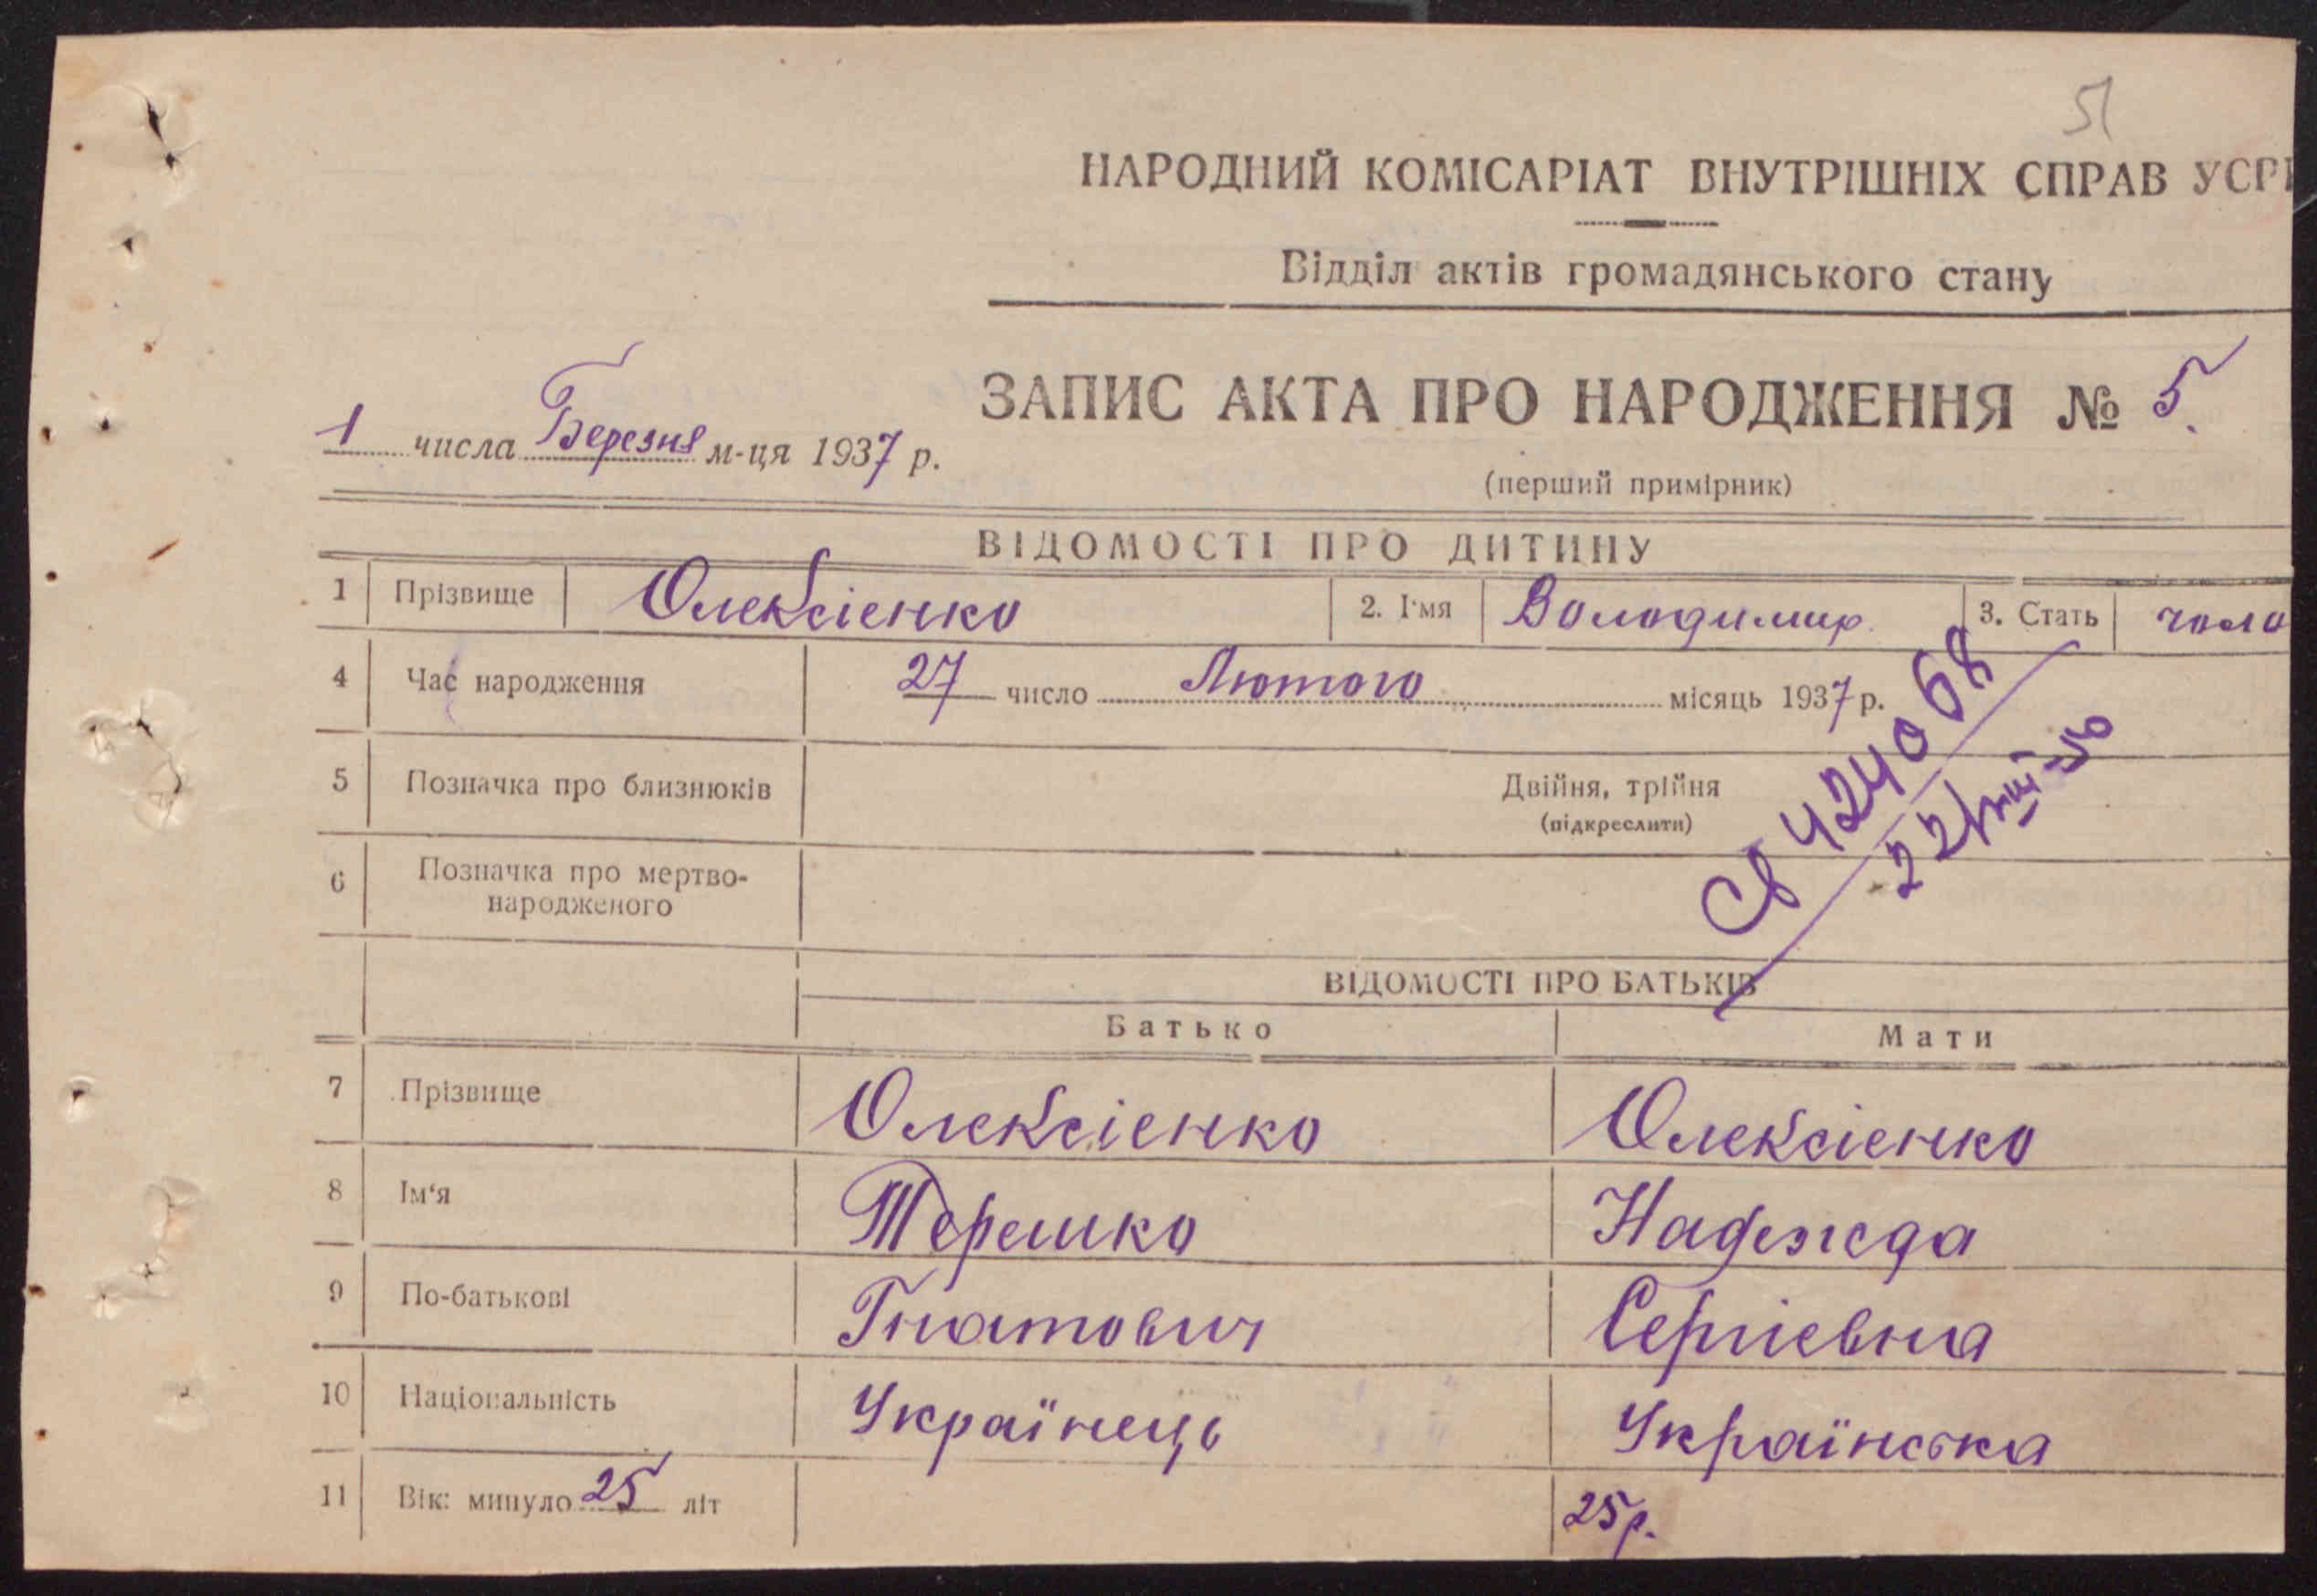 51
НАРОДНИЙ КОМІСАРІАТ ВНУТРІШНІХ СПРАВ УСР
Відділ актів громадянського стану
ЗАПИС АКТА ПРО НАРОДЖЕННЯ № 5
1 числа Березня м-ця 1937 р.
(перший примірник)
ВІДОМОСТІ ПРО ДИТИНУ
1 Прізвище Олексієнко 2. І'мя Володимир 3. Стать чоло
4 Час народження 27 число Лютого місяць 1937 р.
5 Позначка про близнюків Двійня, трійня
(підкреслити)
6 Позначка про мертво-
народженого
424068
22/
ВІДОМОСТІ ПРО БАТЬКІВ
Батько Мати
7 Прізвище Олексієнко Олексієнко
8 Ім‘я Терешко Надежда
9 По-батькові Гнатович Сергієвна
10 Національність Українець Українська
11 Вік: минуло 25 літ 25 р.